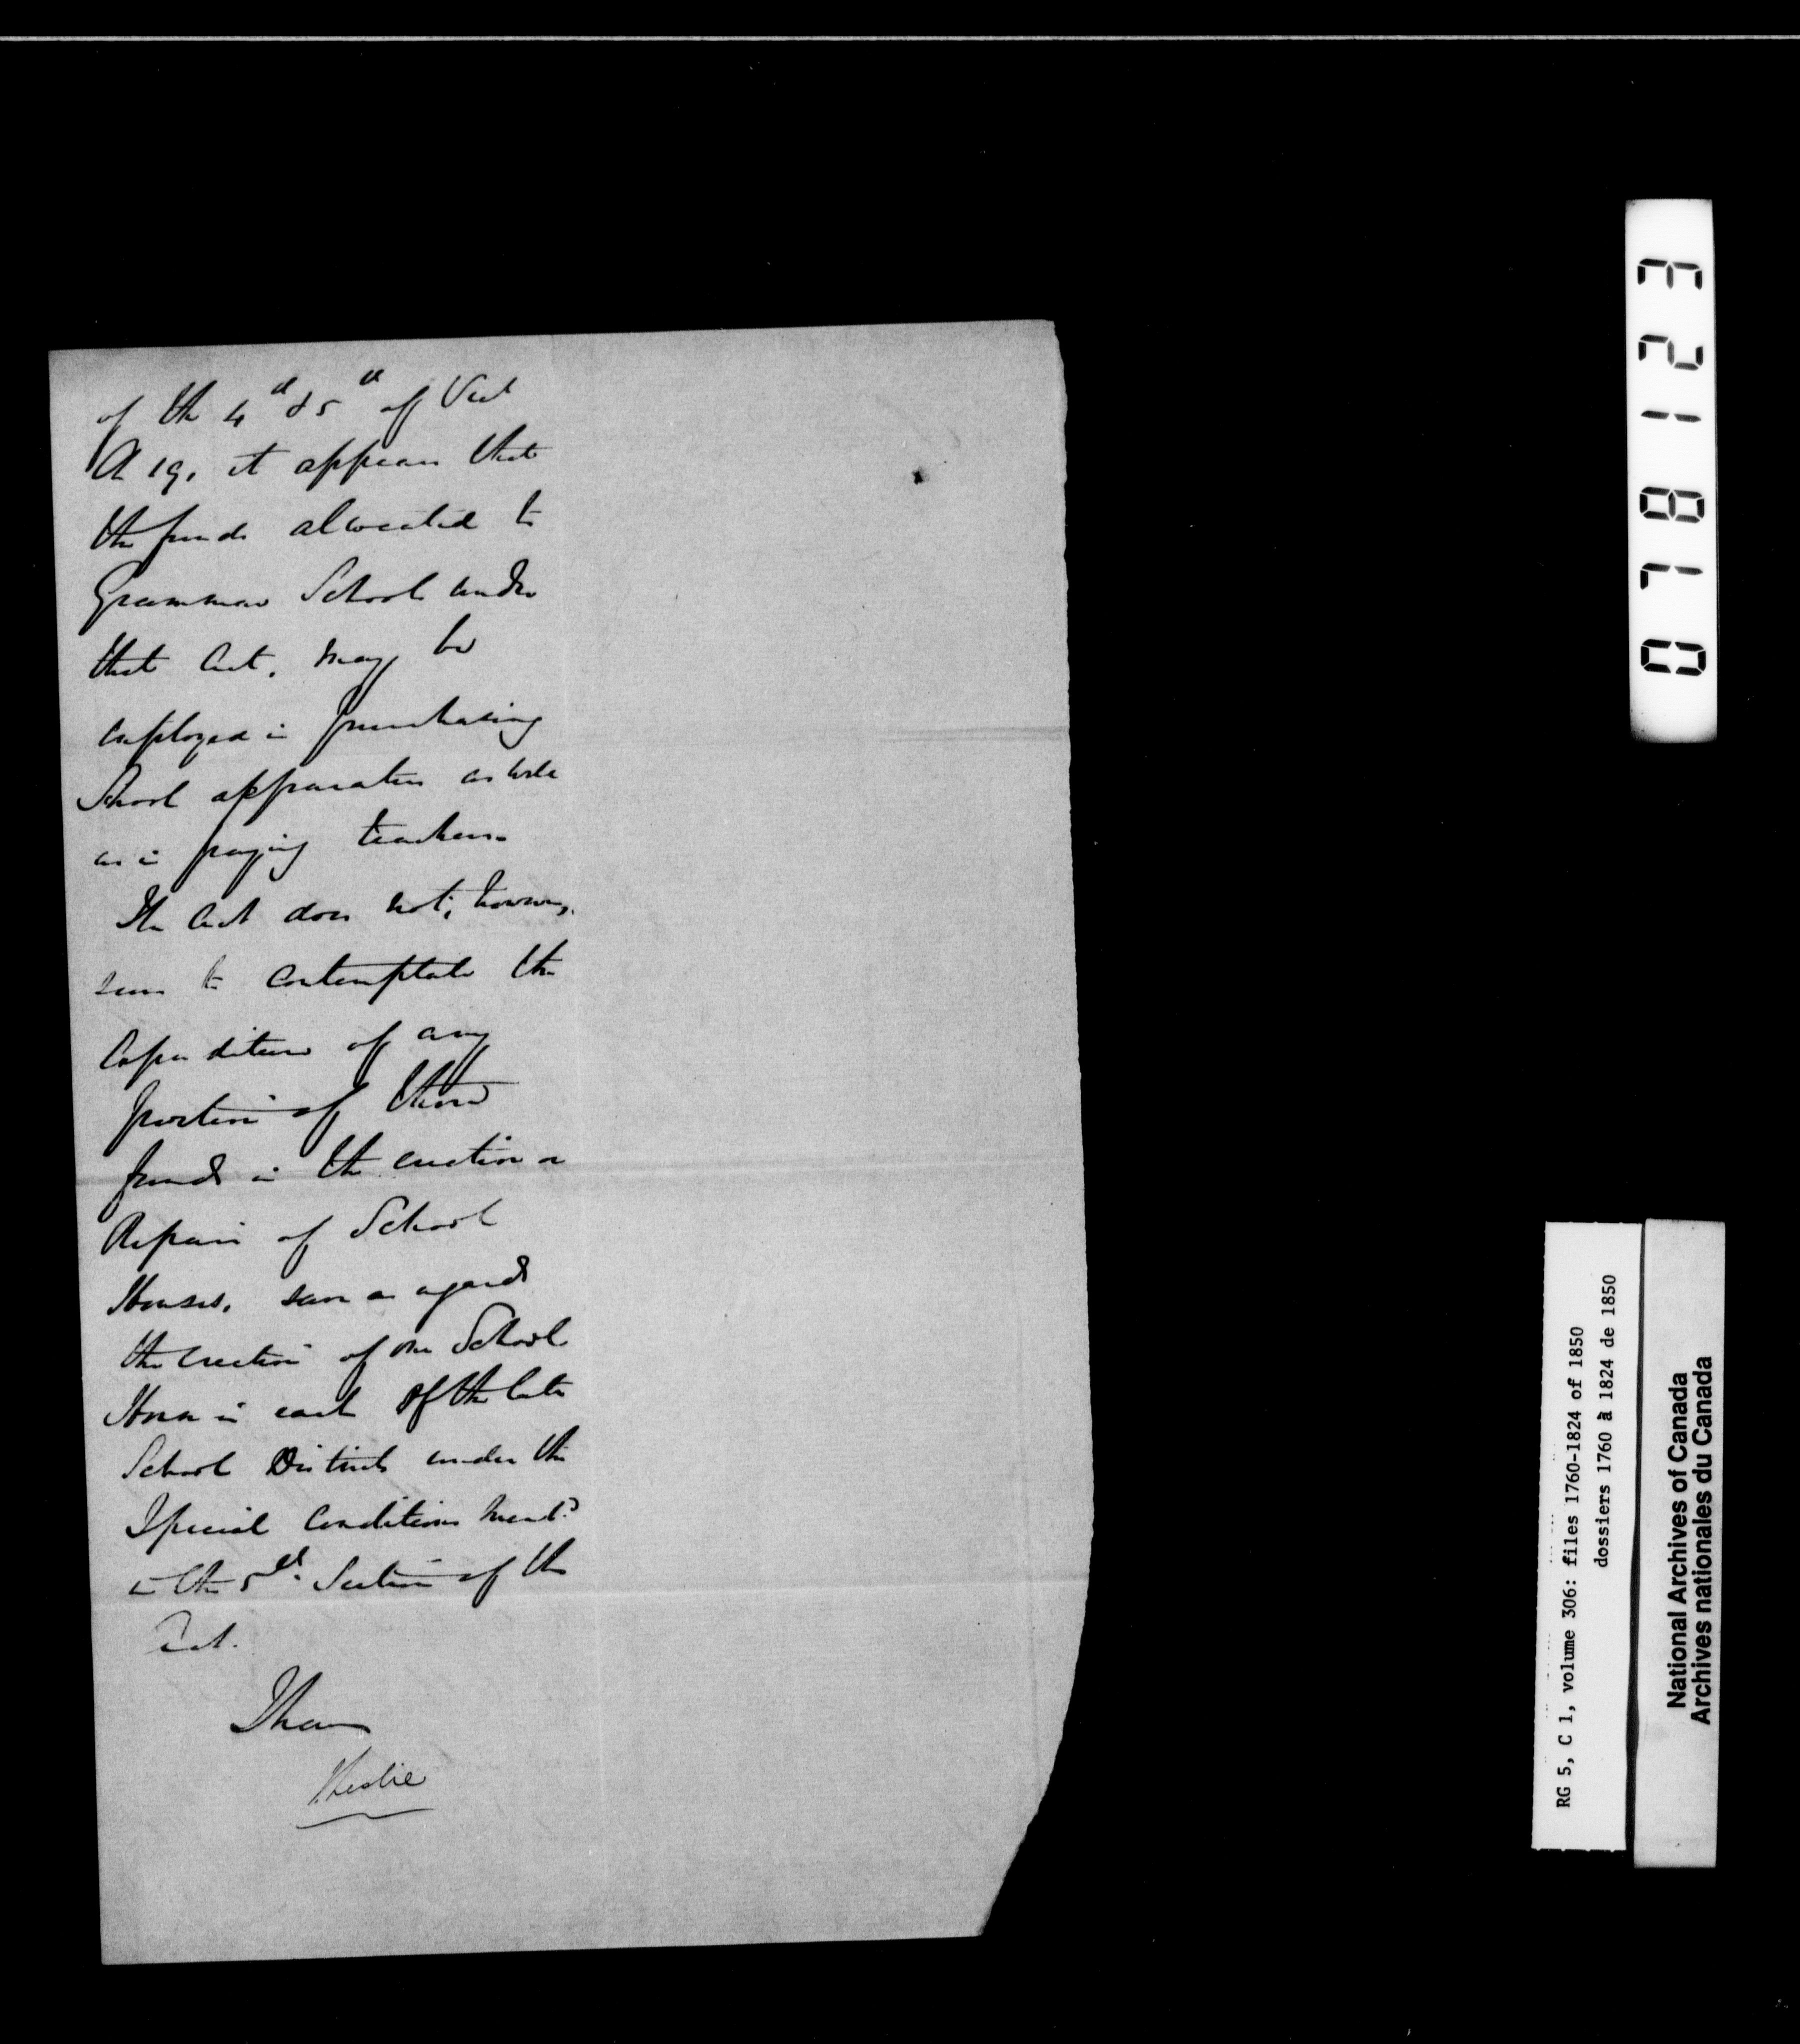 of the 4th & 5th of Vict
Ch 19, it appears that
the funds allocated to
Grammar Schools under
that Act, may be
employed in purchasing
School apparatus as well
as in paying teachers.
The Act does not, however,
seem to contemplate the
Expenditure of any
portion of those
funds in the erection or
Repair of School
Houses, save as regards
the erection of one School
House in each of the late
School Districts under the
Special Conditions ment.d
in the 5th Section of the
Act.
I have
J Leslie
0718123
RG 5, C 1, volume 306: files 1760-1824 of 1850
dossiers 1760 à 1824 de 1850
National Archives of Canada
Archives nationales du Canada